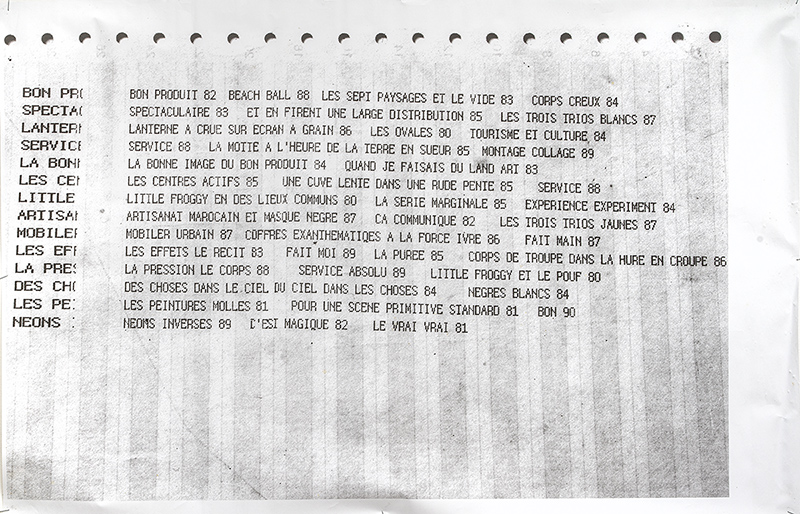 BON PRO BON PRODUIT 82 BEACH BALL 88 LES SEPT PAYSAGES ET LE VIDE 83 CORPS CREUX 84
SPECTA SPECTACULAIRE 83 ET EN FIRENT UNE LARGE DISTRIBUTION 85 LES TROIS TRIOS BLANCS 87
LANTER LANTERNE A CRUE SUR ECRAN A GRAIN 86 LES OVALES 80 TOURISME ET CULTURE 84
SERVICE SERVICE 88 LA MOTTE A L'HEURE DE LA TERRE EN SUEUR 85 MONTAGE COLLAGE 89
LA BON LA BONNE IMAGE DU BON PRODUIT 84 QUAND JE FAISAIS DU LAND ART 83
LES CE LES CENTRES ACTIFS 85 UNE CUVE LENTE DANS UNE RUDE PENTE 85 SERVICE 88
LITTLE LITTLE FROGGY EN DES LIEUX COMMUNS 80 LA SERIE MARGINALE 85 EXPERIENCE EXPERIMENT 84
ARTISA ARTISANAT MAROCAIN ET MASQUE NEGRE 87 CA COMMUNIQUE 82 LES TROIS TRIOS JAUNES 87
MOBILE MOBILIER URBAIN 87 COFFRES EXANTHEMATIQES A LA FORCE IVRE 86 FAIT MAIN 87
LES EF LES EFFETS LE RECIT 83 FAIT MOI 89 LA PUREE 85 CORPS DE TROUPE DANS LA HURE EN CROUPE 86
LA PRES LA PRESSION LE CORPS 88 SERVICE ABSOLU 89 LITTLE FROGGY ET LE POUF 80
DES CHO DES CHOSES DANS LE CIEL DU CIEL DANS LES CHOSES 84 NEGRES BLANCS 84
LES PE LES PEINTURES MOLLES 81 POUR UNE SCENE PRIMITIVE STANDARD 81 BON 90
NEONS NEONS INVERSES 89 C'EST MAGIQUE 82 LE VRAI VRAI 81